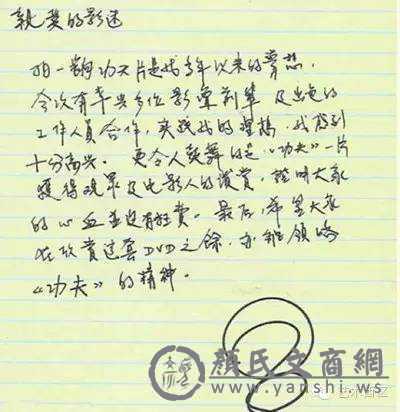 親愛的影迷
拍一齣功夫片是我多年以來的夢想，
今次有幸與多位影壇前輩及出色的
工作人員合作，實踐我的理想，我感到
十分高興。更令人鼓舞的是，“功夫”一片
獲得觀眾及電影人的讚賞，證明大家
的心血並沒有白費。最后，希望大家
在欣賞這套DVD之餘，亦能領略
“功夫”的精神。
顏氏文商網
www.yanshi.ws